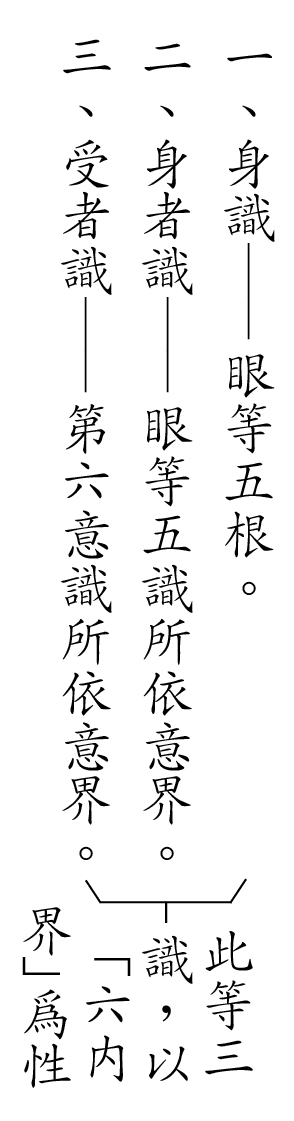 一、身識——眼等五根。
二、身者識——眼等五識所依意界。
三、受者識——第六意識所依意界。
此等三
識，以
「六内
界」爲性